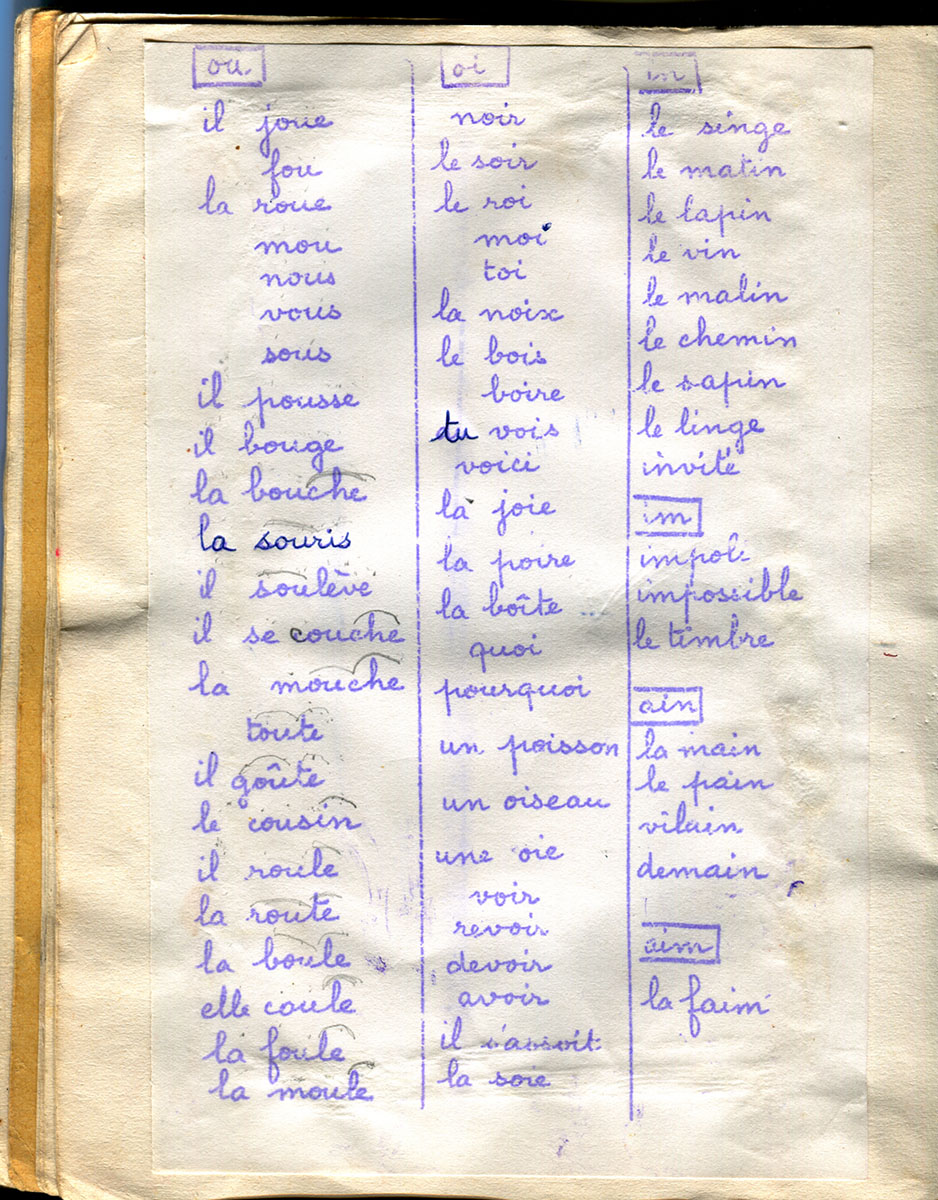 ou
il joue
fou
la roue
mou
nous
vous
sous
il pousse
il bouge
la bouche
la souris
il soulève
il se couche
la mouche
toute
il goûte
le cousin
il roule
la route
la boule
elle coule
la foule
la moule
oi
noir
le soir
le roi
moi
toi
la noix
le bois
boire
tu vois
voici
la joie
la poire
la boîte ...
quoi
pourquoi
un poisson
un oiseau
une oie
voir
revoir
devoir
avoir
il s'assoit
la soie
in
le singe
le matin
le lapin
le vin
le malin
le chemin
le sapin
le linge
invité
im
impoli
impossible
le timbre
ain
la main
le pain
vilain
demain
aim
la faim